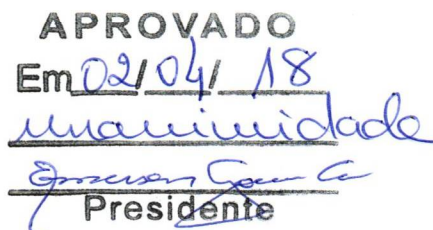 APROVADO
Em 02/04/18
unanimidade
Emerson
Presidente